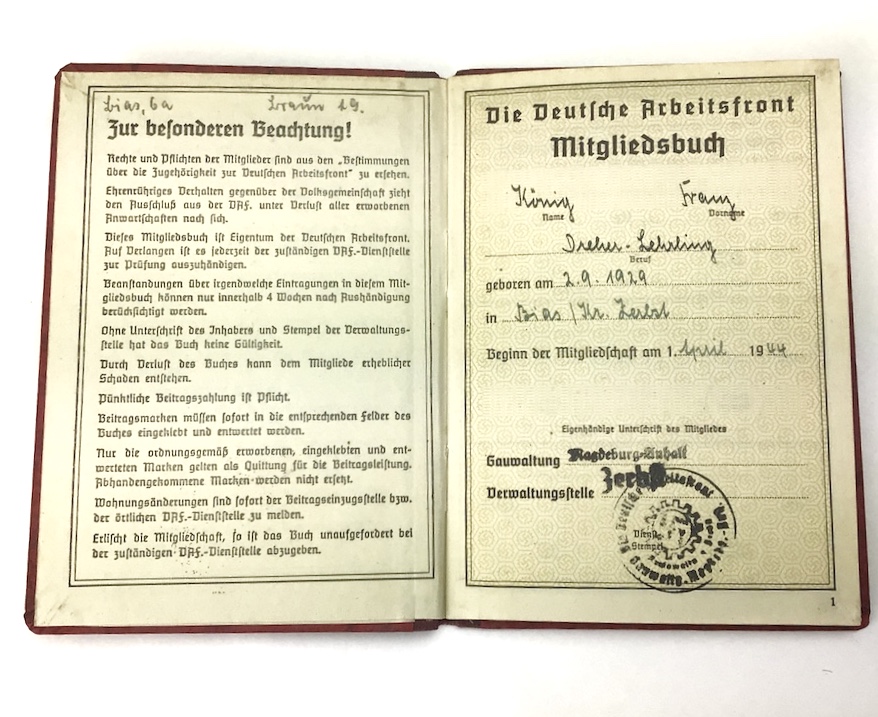 Bias, 6a
Zur besonderen Beachtung!
Rechte und Pflichten der Mitglieder sind aus den „Bestimmungen
über die Zugehörigkeit zur Deutschen Arbeitsfront" zu ersehen.
Ehrenrühriges Verhalten gegenüber der Volksgemeinschaft zieht
den Ausschluß aus der DAF. unter Verlust aller erworbenen
Anwartschaften nach sich.
Dieses Mitgliedsbuch ist Eigentum der Deutschen Arbeitsfront.
Auf Verlangen ist es jederzeit der zuständigen DAF.-Dienststelle
zur Prüfung auszuhändigen.
Beanstandungen über irgendwelche Eintragungen in diesem Mit-
gliedsbuch können nur innerhalb 4 Wochen nach Aushändigung
berücksichtigt werden.
Ohne Unterschrift des Inhabers und Stempel der Verwaltungs-
stelle hat das Buch keine Gültigkeit.
Durch Verlust des Buches kann dem Mitgliede erheblicher
Schaden entstehen.
Pünktliche Beitragszahlung ist Pflicht.
Beitragsmarken müssen sofort in die entsprechenden Felder des
Buches eingeklebt und entwertet werden.
Nur die ordnungsgemäß erworbenen, eingeklebten und ent-
werteten Marken gelten als Quittung für die Beitragsleistung.
Abhandengekommene Marken werden nicht ersetzt.
Wohnungsänderungen sind sofort der Beitragseinzugsstelle bzw.
der örtlichen DAF.-Dienststelle zu melden.
Erlischt die Mitgliedschaft, so ist das Buch unaufgefordert bei
der zuständigen DAF.-Dienststelle abzugeben.
Die Deutsche Arbeitsfront
Mitgliedsbuch
König Franz
Name Vorname
Dreher-Lehrling
Beruf
geboren am 2.9.1929
in Bias / Kr. Zerbst
Beginn der Mitgliedschaft am 1. April 1944
Eigenhändige Unterschrift des Mitgliedes
Gauwaltung Magdeburg-Anhalt
Verwaltungsstelle Zerbst
Dienst-
Stempel
Die Deutsche Arbeitsfront
1